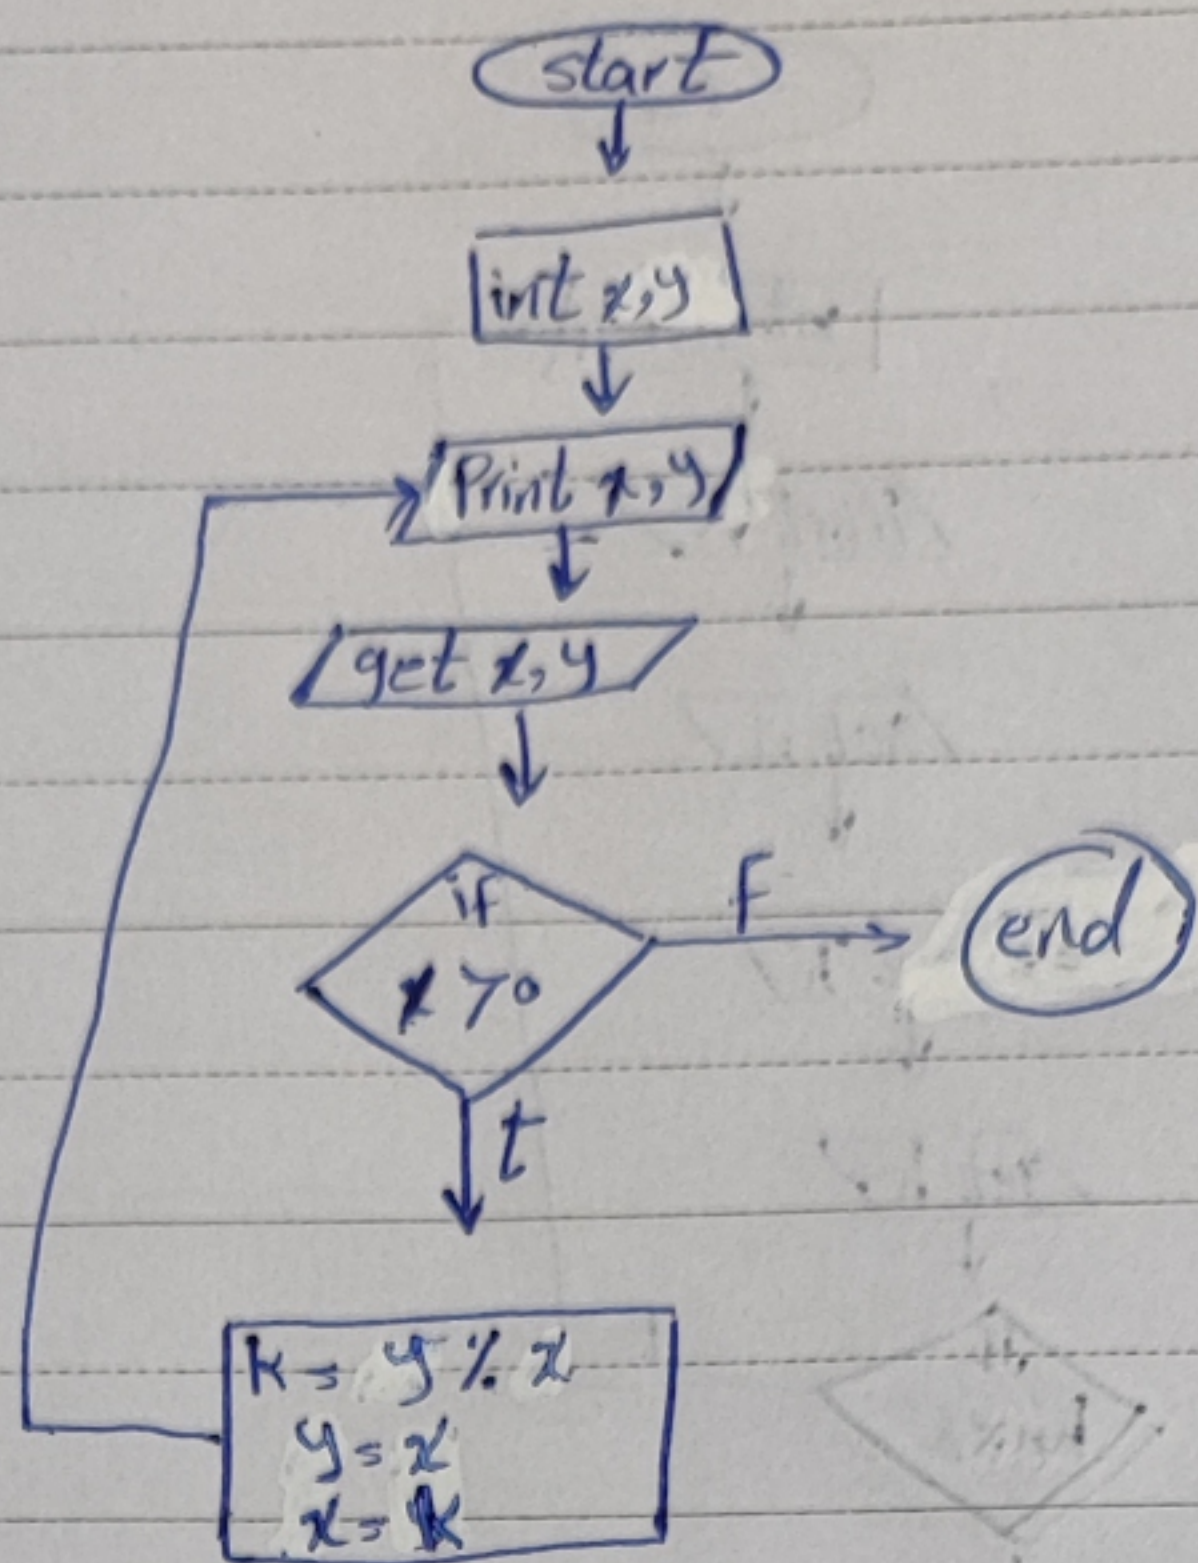 start
int x,y
Print x,y
get x,y
if
x >0
F
end
t
k= y % x
y= x
x= k